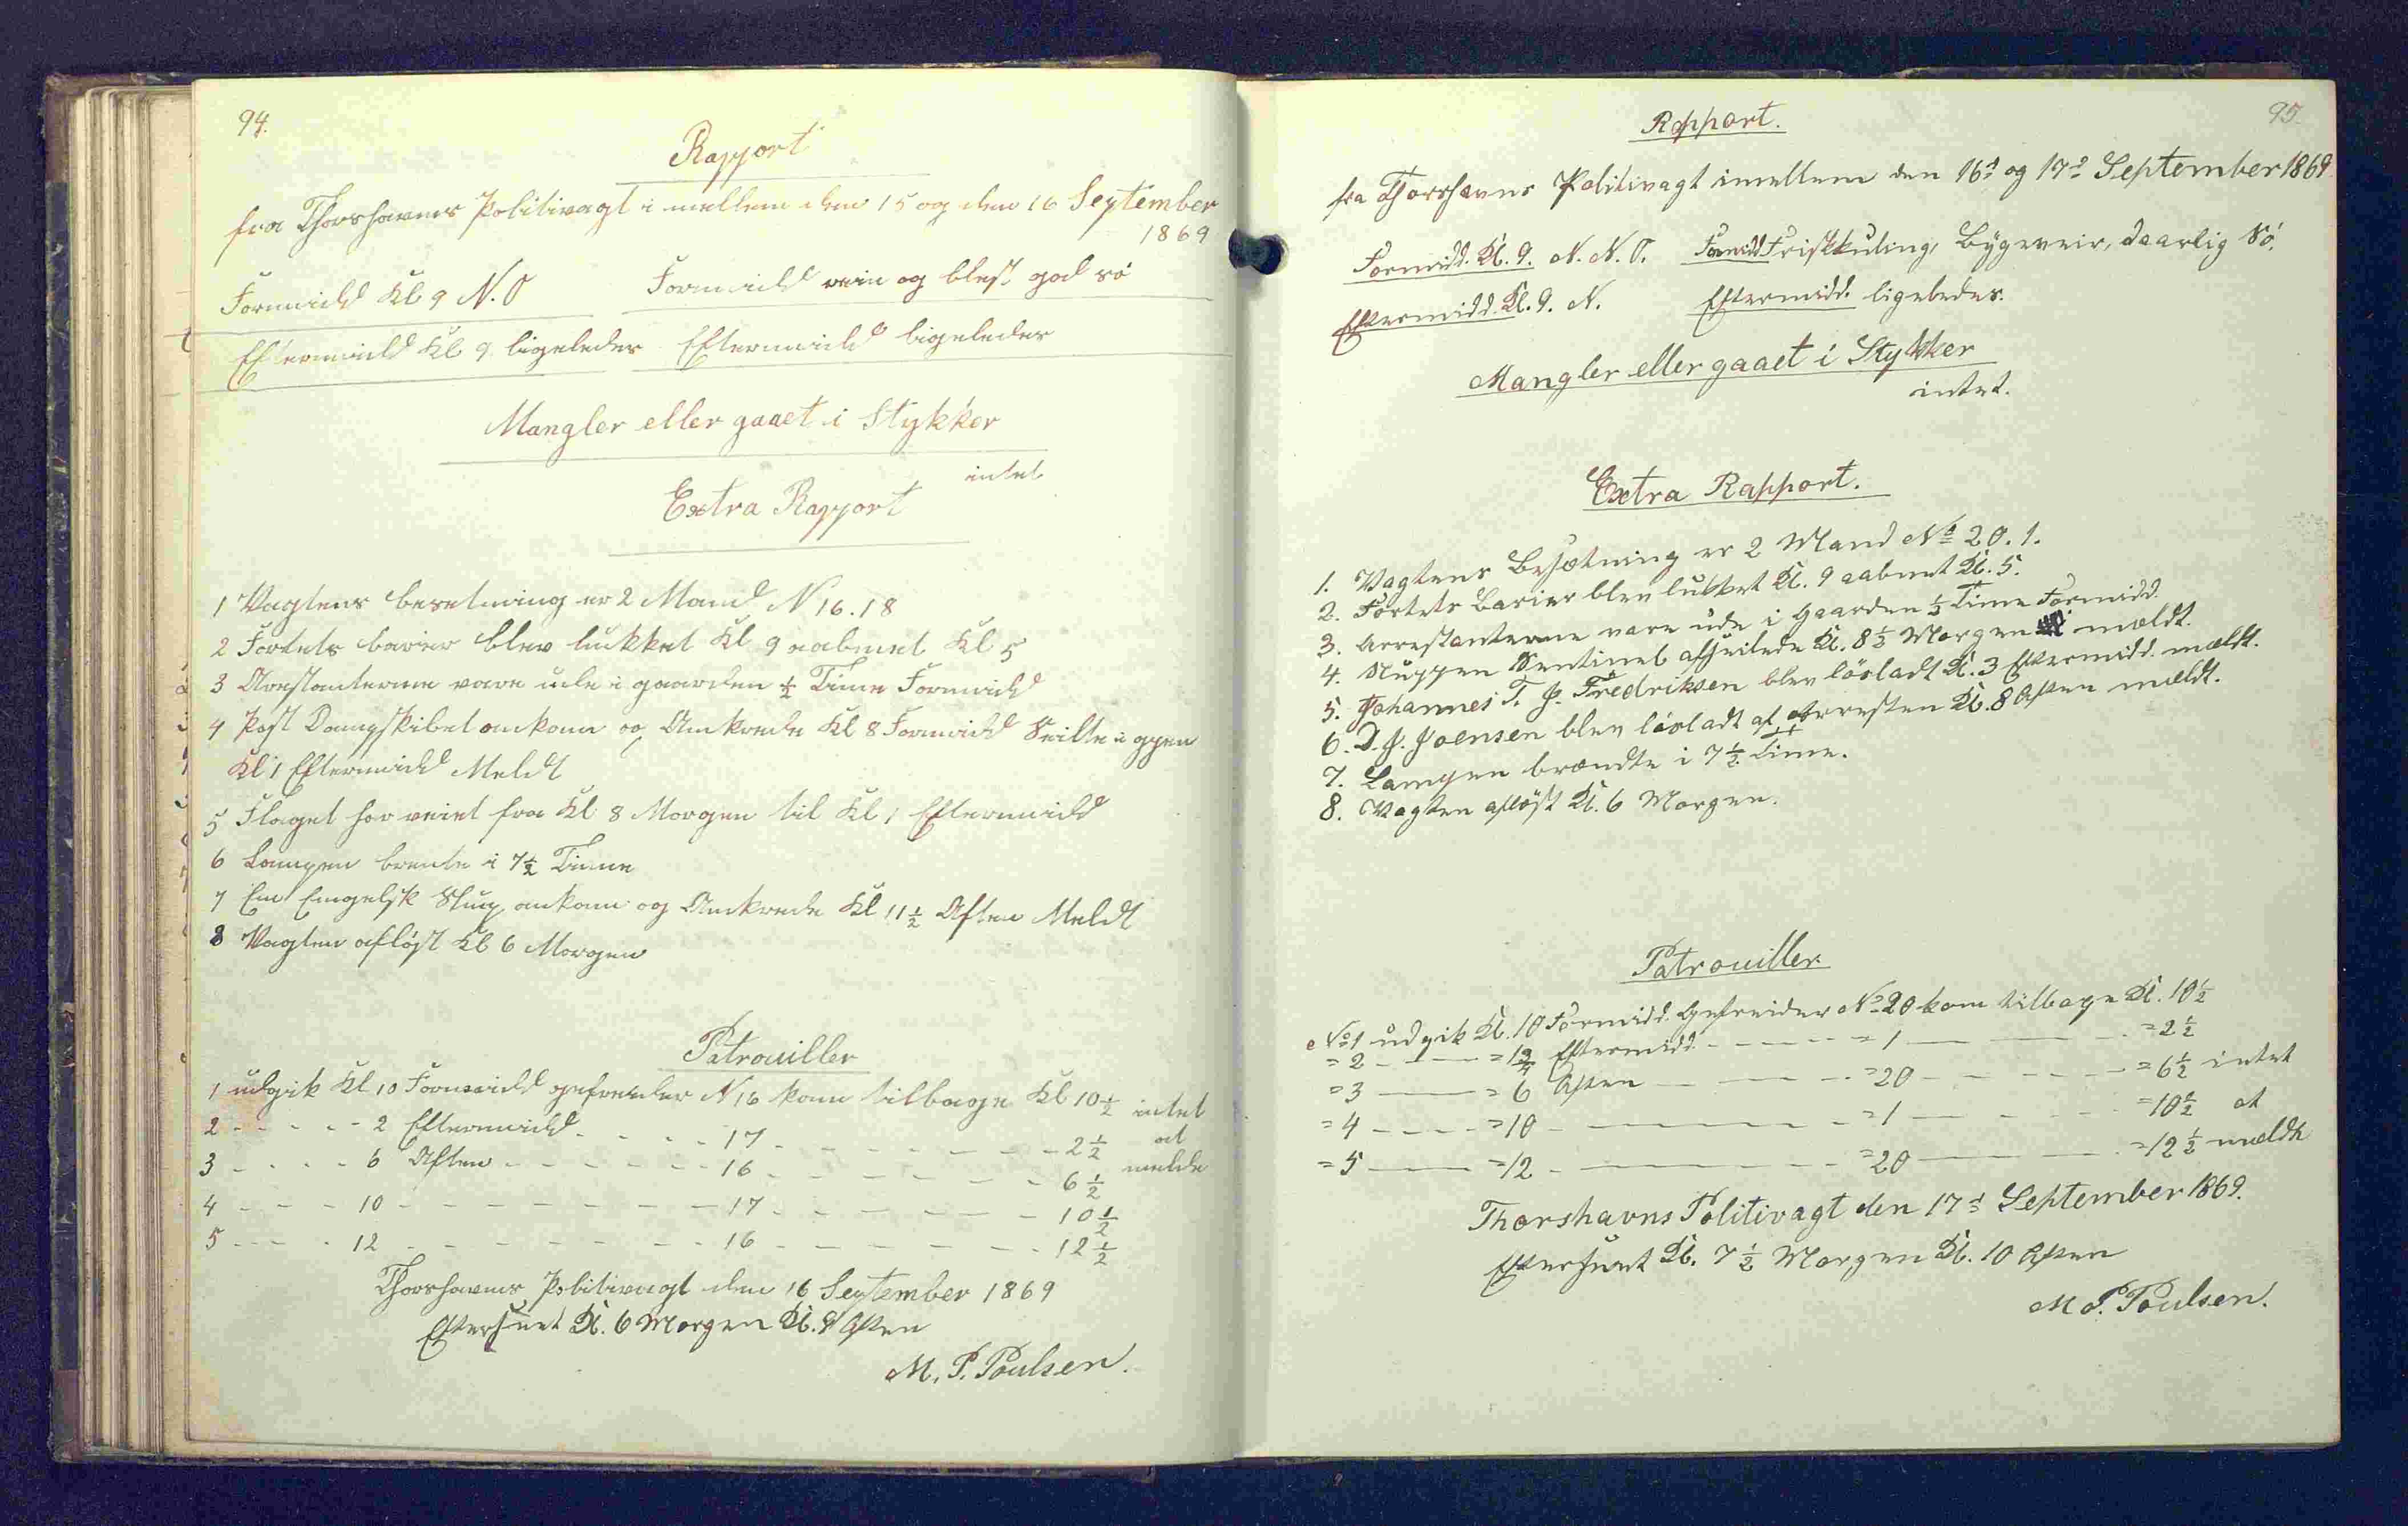 94.
Rapport
fra Thorshavns Politivagt i mellem den 15 og den 16 September
1869
Formidd Kl 9 N.O Formidd rein og blest god sö
Eftermidd Kl 9 ligeledes Eftermidd ligeledes
Mangler eller gaaet i Stykker
intet
Extra Rapport
1 Vagtens besetning er 2 Mand N 16.18
2 Fortets barier blev lukket Kl 9 aabnet Kl 5
3 Arestanterne vare ude i gaarden ½ Time Formidd
4 Post Dampskibet ankom og Ankrede Kl 8 Formidd Seilte igyen
Kl 1 Eftermidd Meldt
5 Flaget har veiet fra Kl 8 Morgen til Kl 1 Eftermidd
6 Lampen brente i 7½ Time
7 En Engelsk Slup ankom og Ankrede Kl 11½ Aften Meldt
8 Vagten aflöst Kl 6 Morgen
Patrouiller
1 udgik Kl 10 Formidd gefreider N 16 kom tilbage Kl 10½ intet
2 - - - - - 2 Eftermidd - - - - 17 - - - - - - - 2½ at
3 - - - - 6 Aften - - - - - - 16 - - - - - - 6½ melde
4 - - - 10 - - - - - - - - 17 - - - - - - 10½
5 - - - - 12 - - - - - - - - 16 - - - - - - 12½
Thorshavns Politivagt den 16 September 1869
Efterseet Kl. 6 Morgen Kl. 9 Aften
M. P. Poulsen.
95.
Rapport.
fra Thorshavns Politivagt imellem den 16d og 17d September 1869
Formidd. Kl. 9. N. N. O. Formidd Friskkuling, Bygeveir, daarlig Sö.
Eftermidd. Kl. 9. N. Eftermidd. ligeledes.
Mangler eller gaaet i Stykker
intet.
Extra Rapport.
1. Vagtens Besætning er 2 Mand No 20. 1.
2. Fortets Barier blev lukket Kl. 9 aabnet Kl. 5.
3. Arrestanterne vare ude i Gaarden ½ Time Formidd.
4. Sluppen Sentinel afseilede Kl. 8½ Morgen mældt.
5. Johannes T. J. Fredriksen blev lösladt Kl. 3 Eftermidd. mældt.
6. D. J. Joensen blev lösladt af Arresten Kl. 8 Aften mældt.
7. Lampen brændte i 7½ Time.
8. Vagten aflöst Kl. 6 Morgen.
Patrouiller
No 1 udgik Kl. 10 Formidd. Gefreider No 20 kom tilbage Kl. 10½
= 2 - - - = 2 Eftermidd - - - - = 1 - - - - = 2½
= 3 - - - = 6 Aften - - - - = 20 - - - - = 6½ intet
= 4 - - - - = 10 - - - - - - = 1 - - - - = 10½ at
= 5 - - - = 12 - - - - - - = 20 - - - - = 12½ mælde
Thorshavns Politivagt den 17d September 1869.
Efterseet Kl. 7½ Morgen Kl. 10 Aften
M. P. Poulsen.